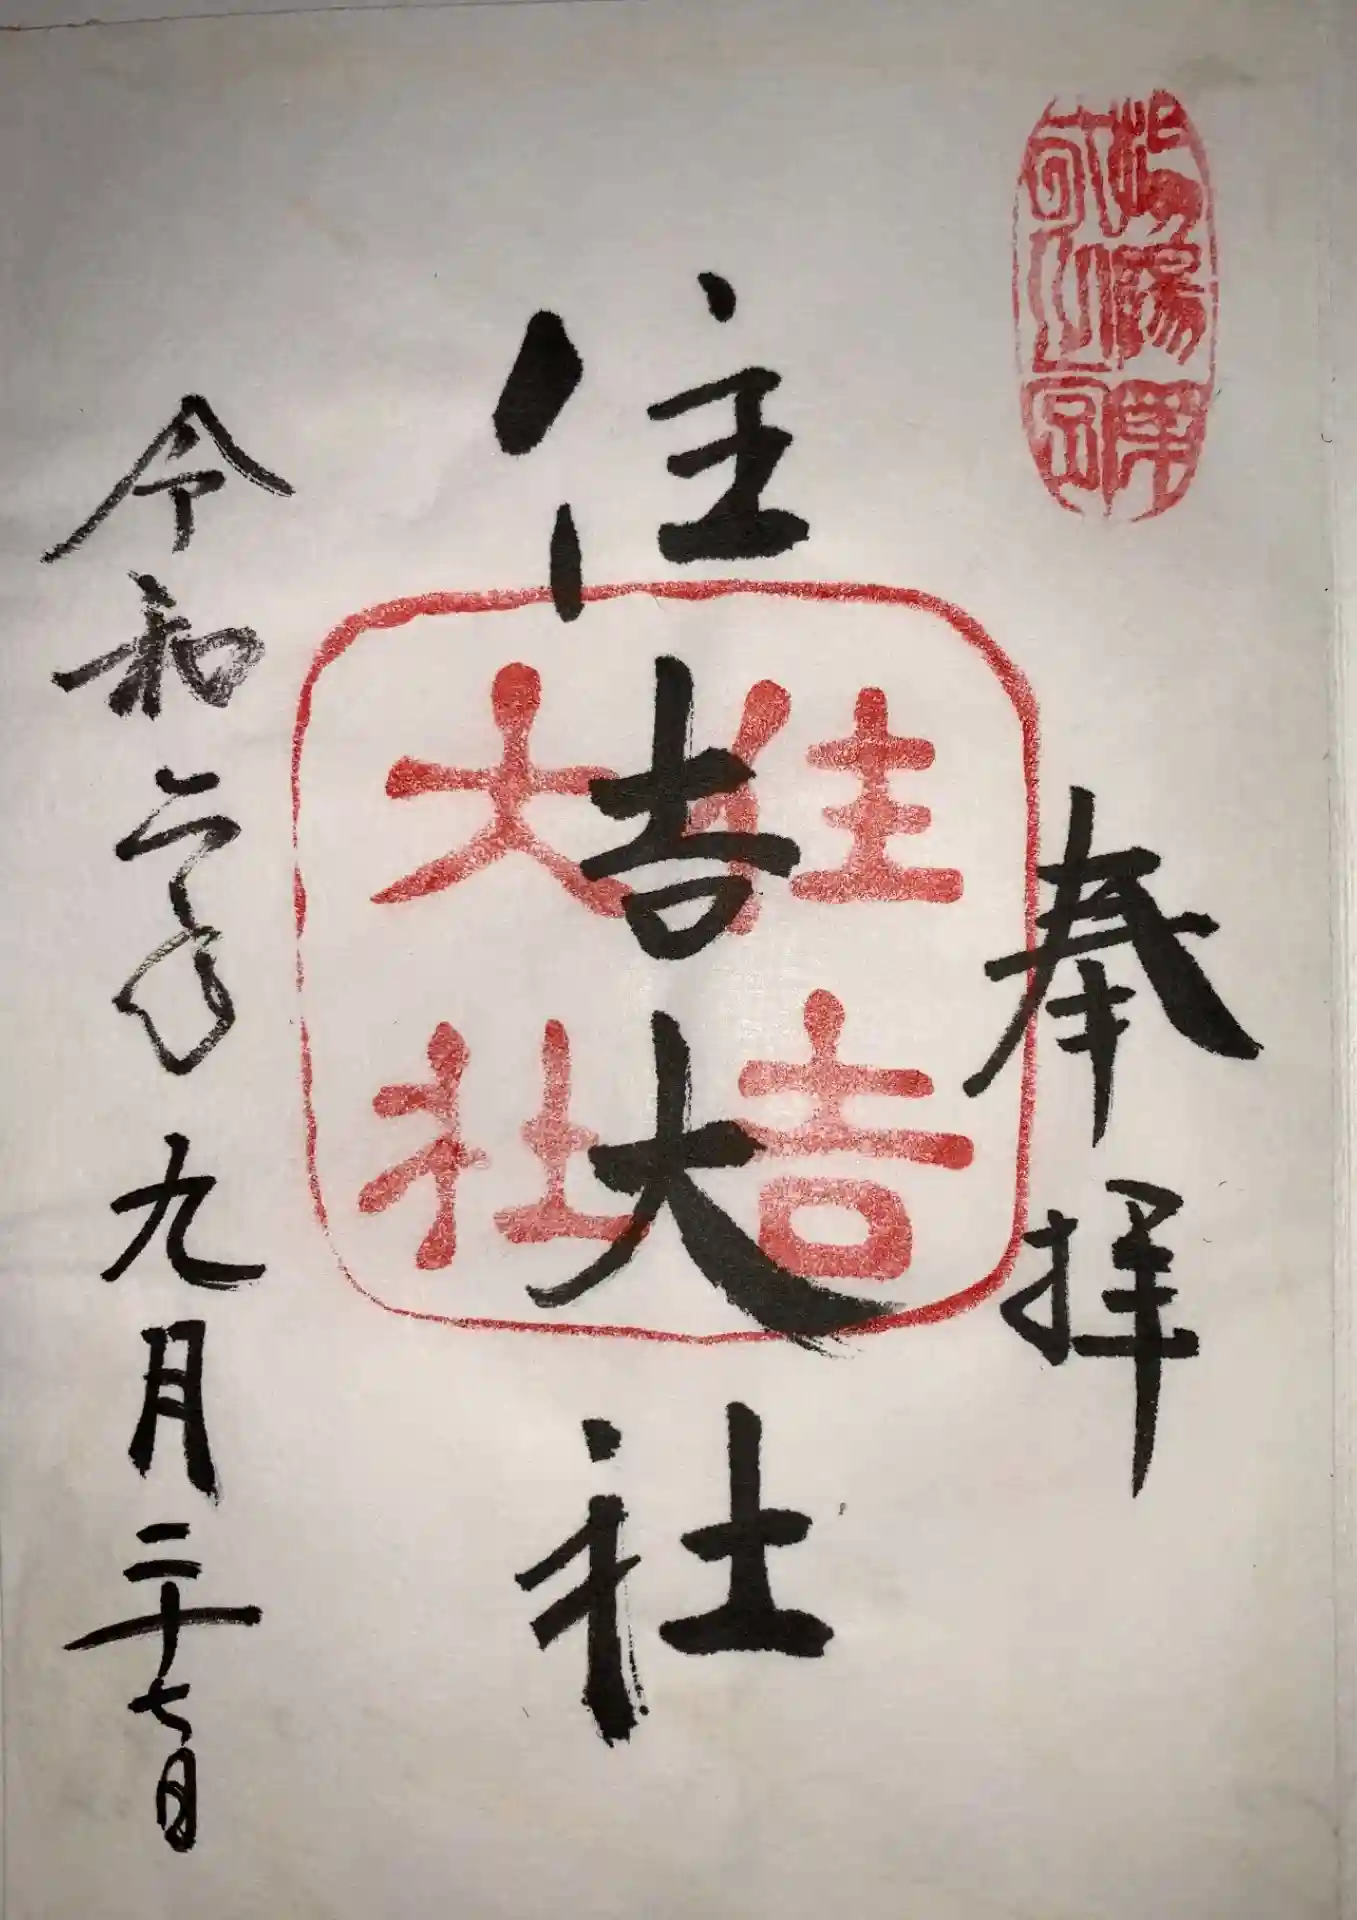 奉拝
住吉大社
住吉
大社
令和二年九月二十七日